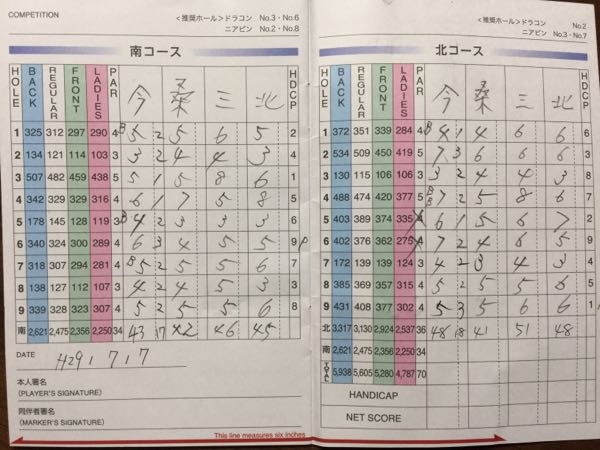 COMPETITION
<推奨ホール>ドラコン No.3・No.6
ニアピン No.2・No.8
南コース
HOLE BACK REGULAR FRONT LADIES PAR 今 桑 三 北 HDCP
1 325 312 297 290 4 5 2 5 6 5 2
2 134 121 114 103 3 3 2 4 4 3 4
3 507 482 459 438 5 5 1 5 8 6 1
4 342 329 329 316 4 6 1 7 5 8 5
5 178 145 128 119 3 4 2 3 3 3 6
6 340 324 300 289 4 6 3 4 5 5 9
7 318 307 294 281 4 5 2 5 5 6 7
8 138 127 112 107 3 4 2 4 5 3
9 339 328 323 307 4 5 2 5 5 6 8
南 2,621 2,475 2,356 2,250 34 43 17 42 46 45
DATE H29.7.7
本人署名
(PLAYER'S SIGNATURE)
同伴者署名
(MARKER'S SIGNATURE)
<推奨ホール>ドラコン No.2
ニアピン No.3・No.7
北コース
HOLE BACK REGULAR FRONT LADIES PAR 今 桑 三 北 HDCP
1 372 351 339 284 4 4 1 4 6 6 6
2 534 509 450 419 5 7 3 6 6 6 2
3 130 115 106 106 3 3 2 4 4 3 8
4 488 474 420 377 5 7 2 5 8 6 7
5 403 389 374 335 6 1 5 6 7 2
6 402 376 362 275 7 2 4 6 5 9
7 172 139 139 124 3 4 2 3 4 3 4
8 385 369 357 315 4 5 2 5 5 6 5
9 431 408 377 302 4 5 3 5 6 6 1
北 3,317 3,130 2,924 2,537 36 48 18 41 51 48
南 2,621 2,475 2,356 2,250 34
TOTAL 5,938 5,605 5,280 4,787 70
HANDICAP
NET SCORE
This line measures six inches